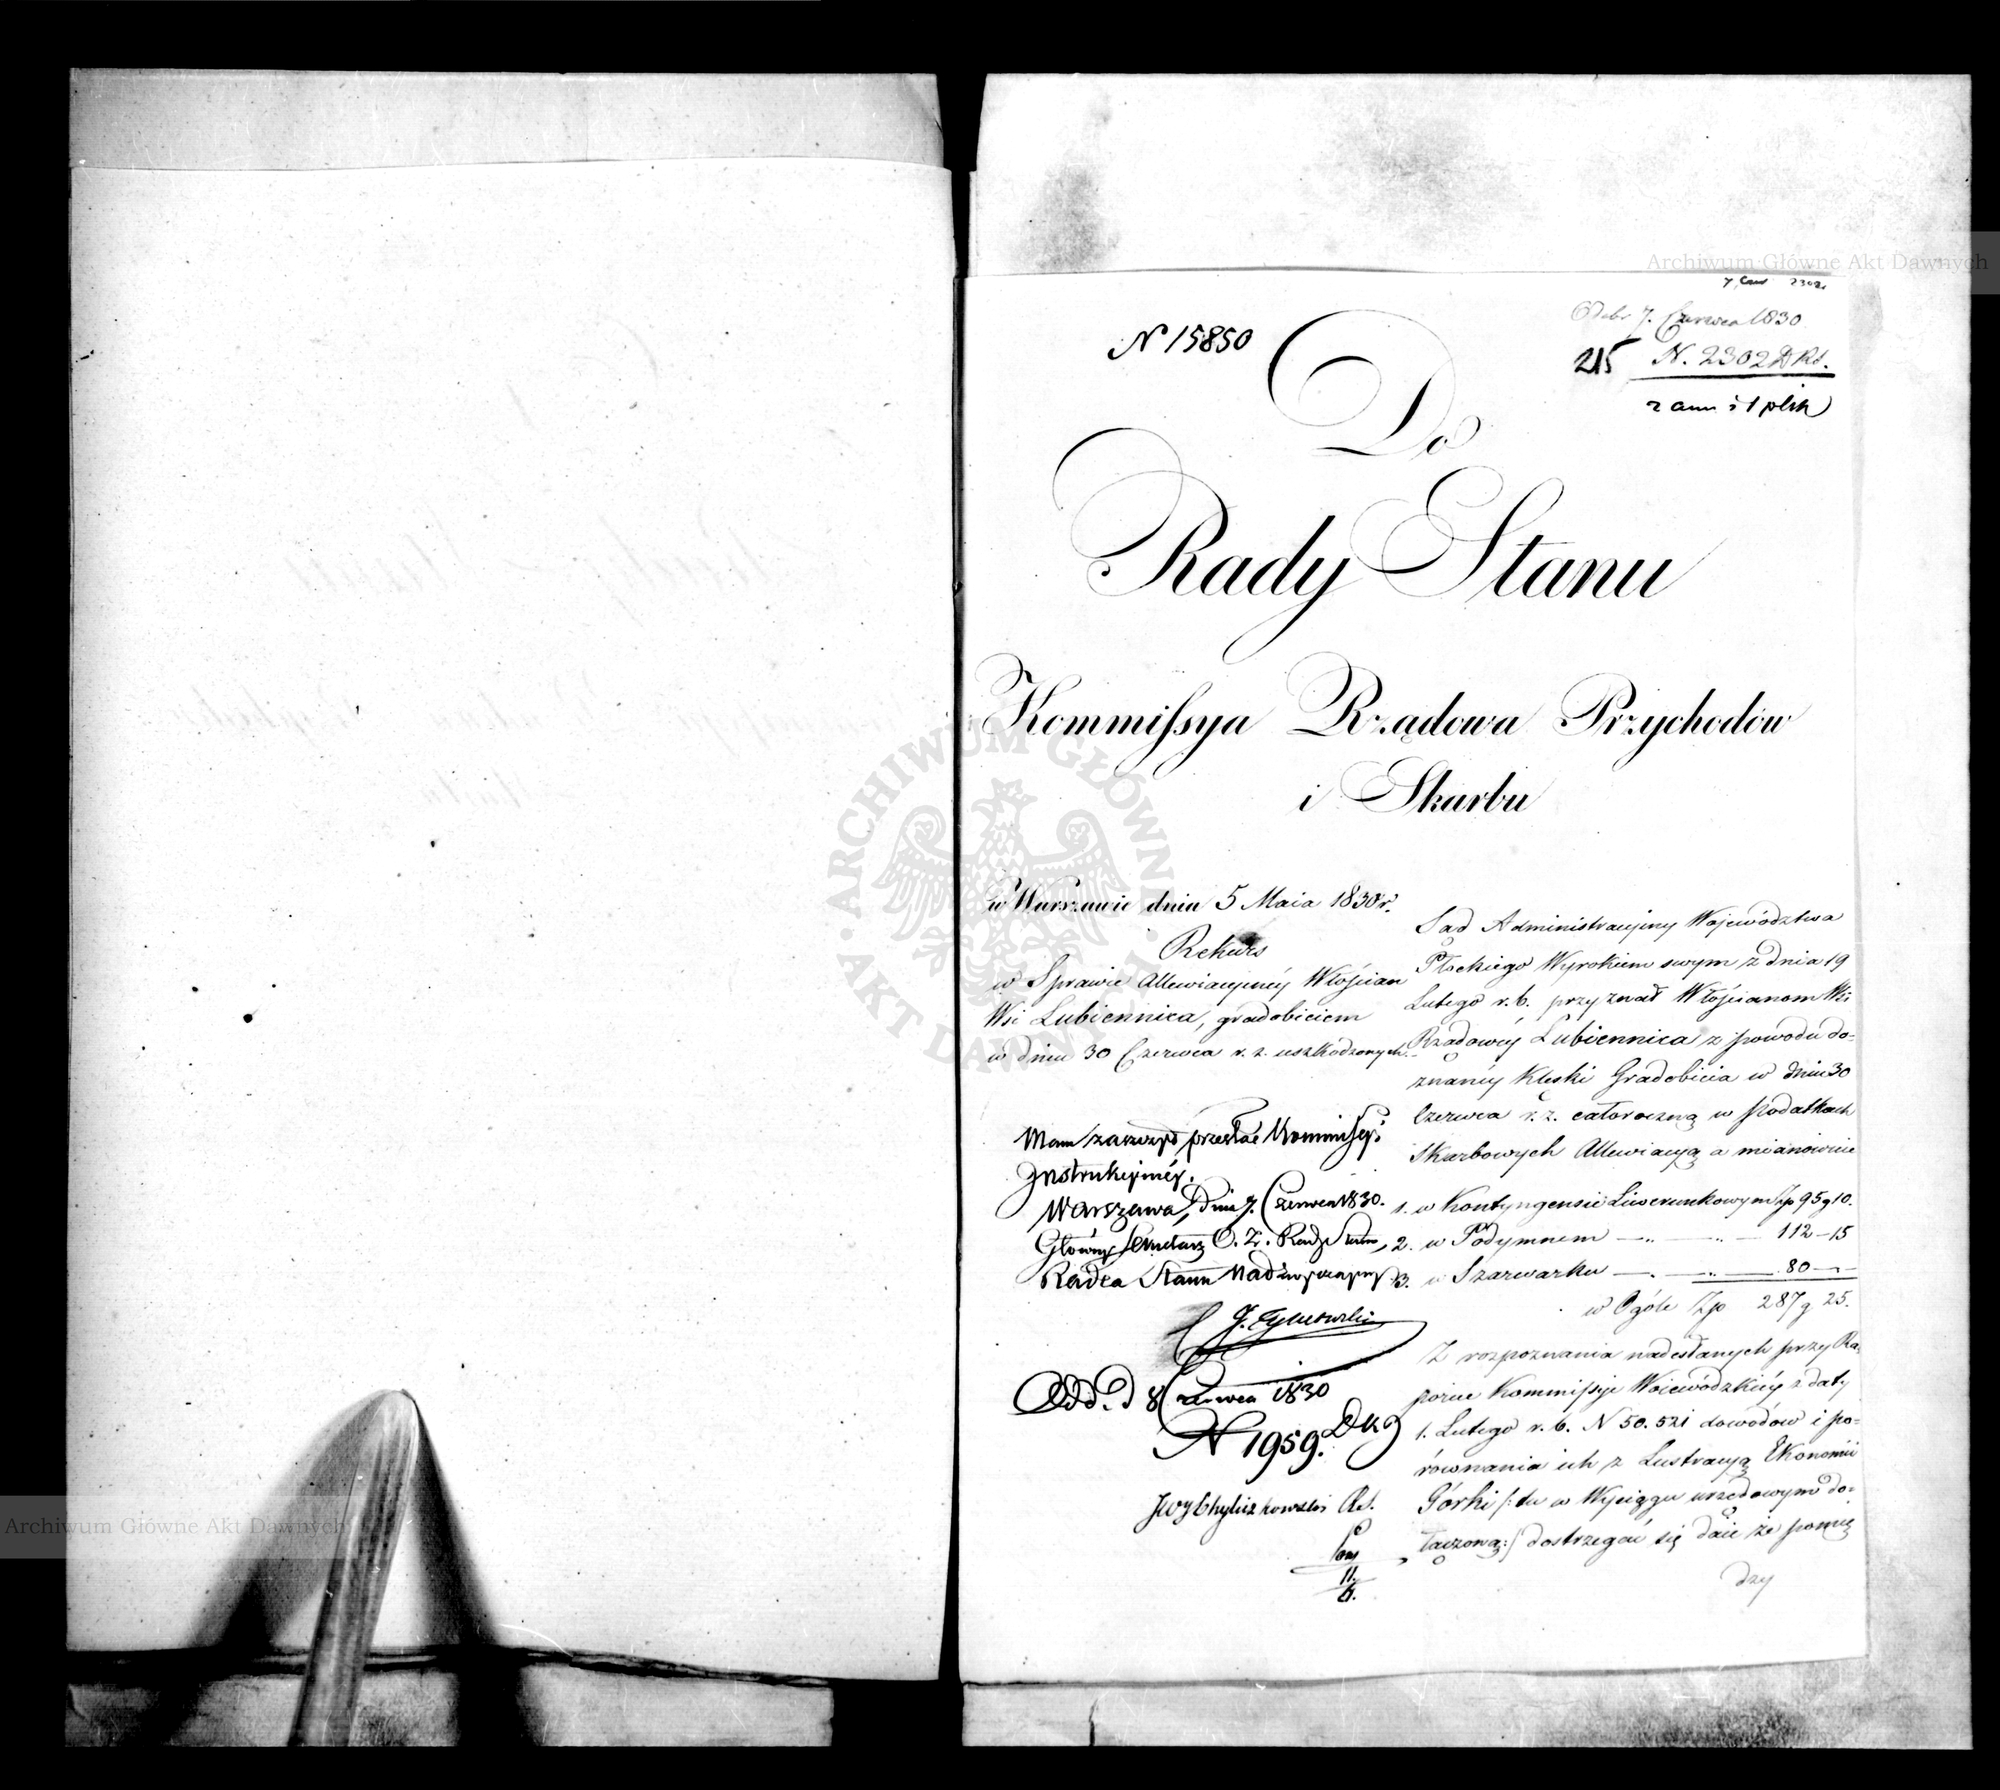 Archiwum Główne Akt Dawnych
7 Czer 2302
Odebr 7. Czerwca 1830
N 15850
215 N. 2302 D Rd.
z ann i 1 plik
Do
Rady Stanu
Kommissya Rządowa Przychodów
i Skarbu
w Warszawie dnia 5 Maia 1830 r.
Rekurs
w Sprawie Allewiacyinéy Włościan
Wsi Lubiennica, gradobiciem
w dniu 30 Czerwca r. z. uszkodzonych.
Mam zaszczyt przesłać Kommissyi
Instrukcyinéy.
Warszawa, Dnia 7. Czerwca 1830.
Główny Sekretarz O. Z. Rady Stanu,
Radca Stanu Nadzwyczayny
Odd. d 8 Czerwca 1830
N 1959. DKJ
JW Chyliczkowski Ref.
Sąd Administracyiny Województwa
Płockiego Wyrokiem swym z dnia 19
Lutego r. b. przyznał Włościanom Wsi
Rządowéy Lubiennica z powodu do-
znanéy Klęski Gradobicia w dniu 30
Czerwca r. z. całoroczną w podatkach
Skarbowych Allewiacyą a mianowicie
1. w Kontyngensie Liwerunkowym Zp 95 g 10.
2. w Podymnem — 112 — 15
3. w Szarwarku — 80 —
w Ogóle Zp 287 g 25.
Z rozpoznania nadesłanych przy Ra-
porcie Kommissyi Woiewódzkiéy z daty
1. Lutego r. b. N 50.521 dowodów i po-
równania ich z Lustracyą Ekonomii
Górki /: tu w Wyciągu urzędowym do-
łączoną :/ dostrzegać się daie że pomię
dzy
ARCHIWUM GŁÓWNE AKT DAWNYCH
Archiwum Główne Akt Dawnych